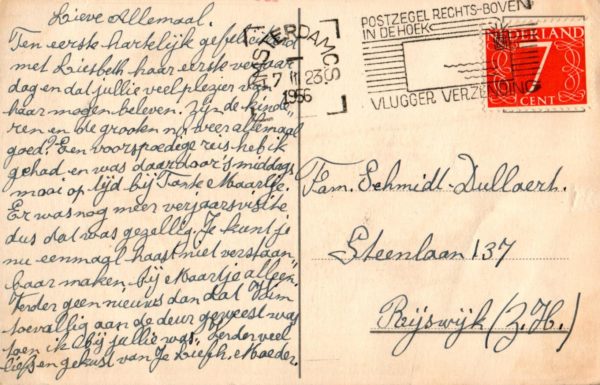 Lieve Allemaal.
Ten eerste hartelijk gefeliciteerd
met Liesbeth haar eerste verjaar
dag en dat jullie veel plezier van
haar mogen beleven. Zijn de kinde
ren en de grooten nu weer allemaal
goed? Een voorspoedige reis heb ik
gehad en was daardoor 's middags
mooi op tijd bij Tante Maartje.
Er was nog meer verjaarsvisite
dus dat was gezellig. Je kunt je
nu eenmaal haast niet verstaan
baar maken. bij Maartje alleen.
Verder geen nieuws dan dat Wim
toevallig aan de deur geweest was
toen ik bij jullie was. Verder veel
liefs en gekust van Je Liefh. Moeder.
AMSTERDAM C.S.
7 II 23
1956
POSTZEGEL RECHTS-BOVEN
IN DE HOEK
VLUGGER VERZENDING
NEDERLAND
7
CENT
Fam. Schmidt-Dullaert.
Steenlaan 137
Rijswijk (Z.H.)